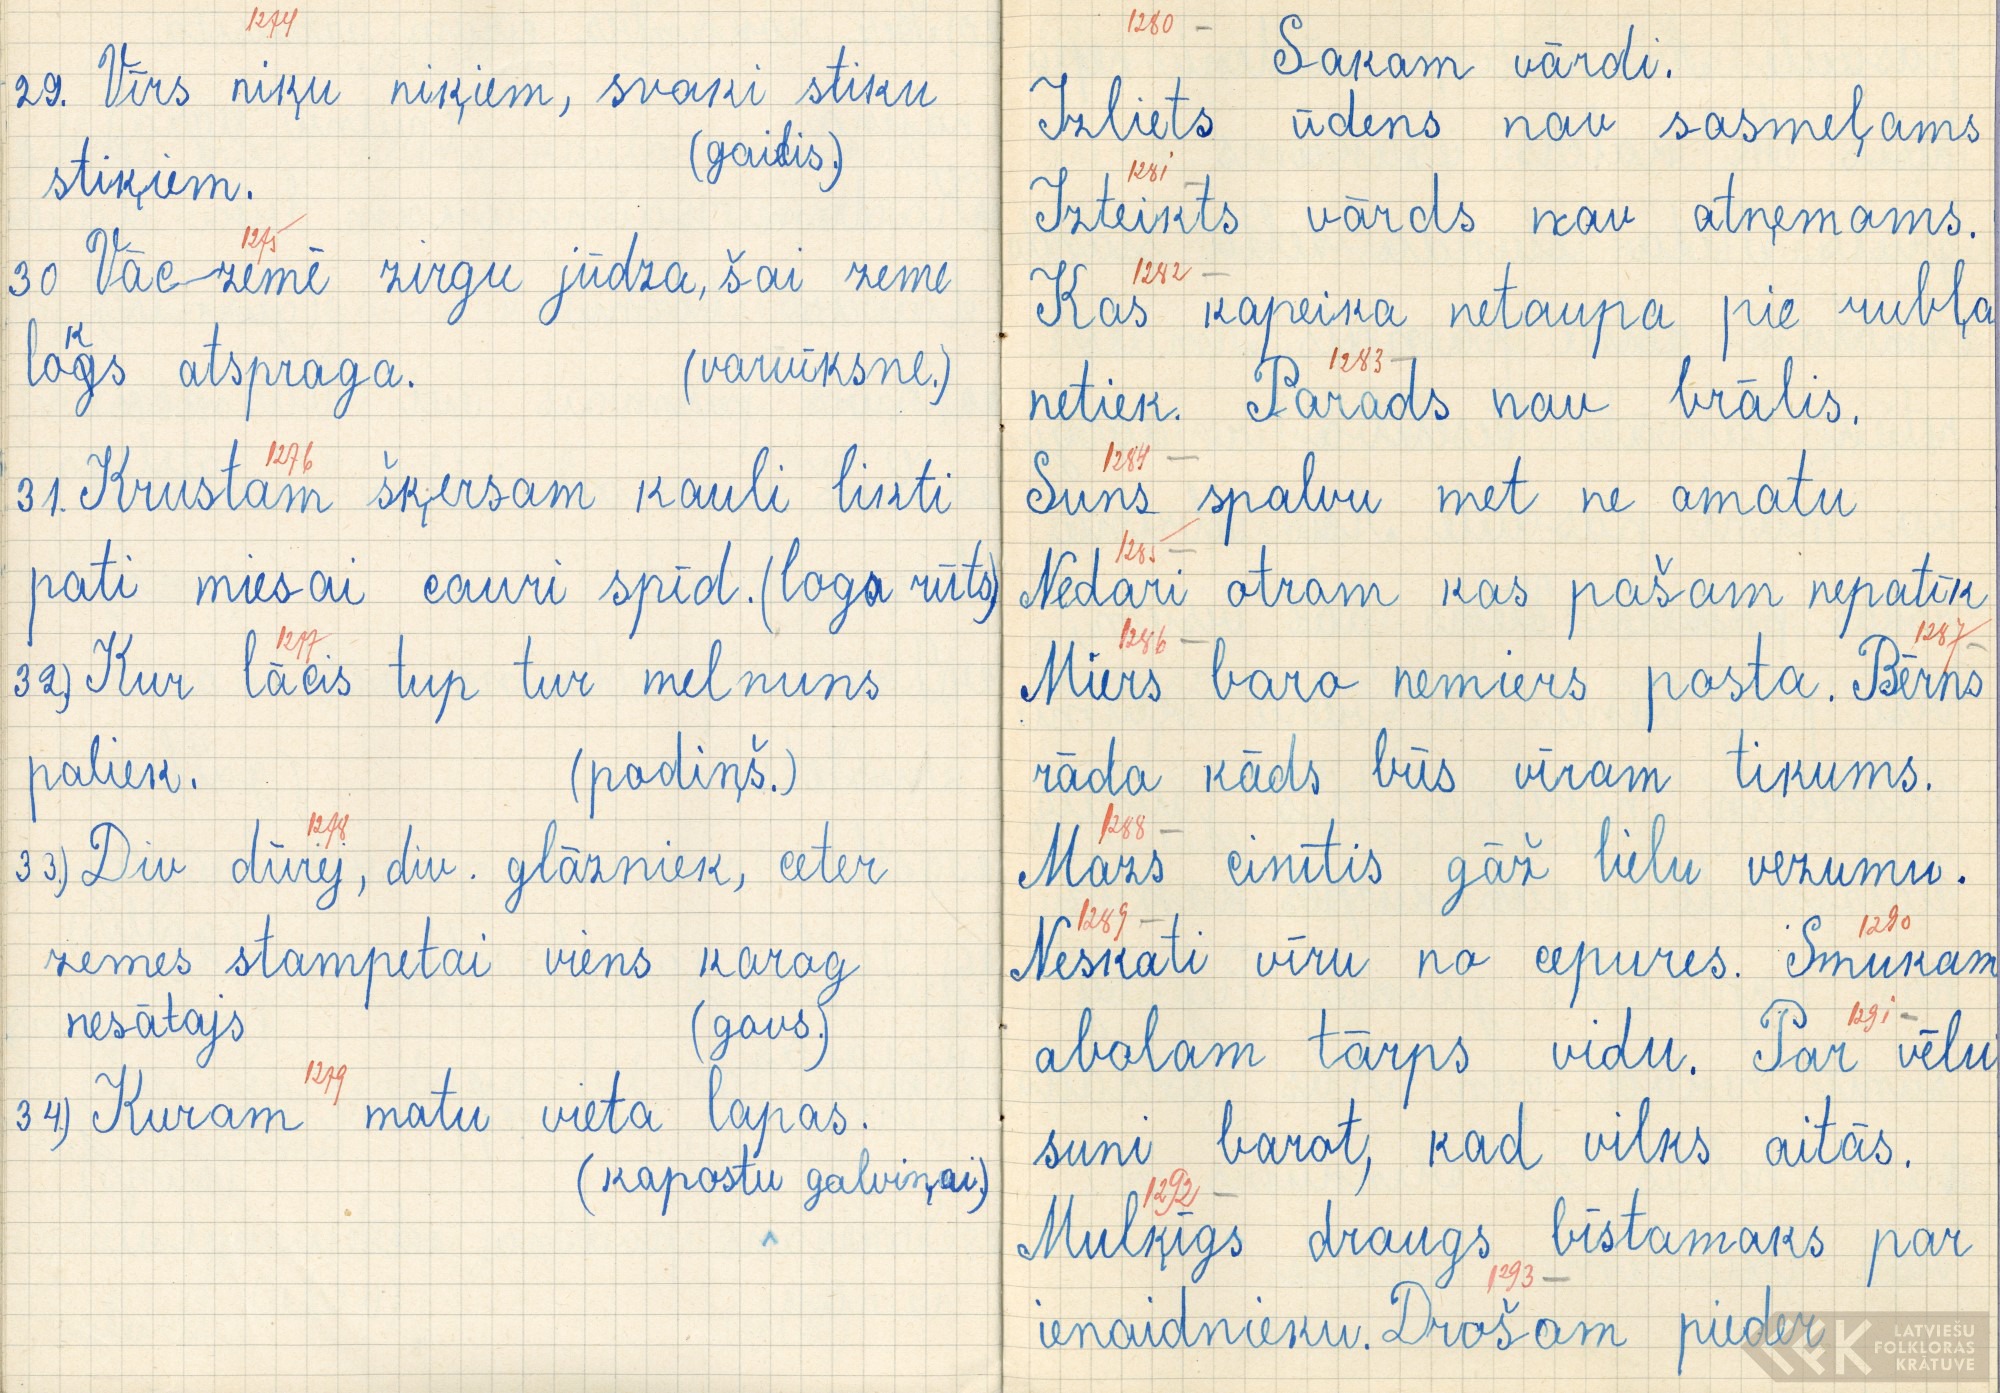 1274
29. Vīrs niķu niķiem, svaki stiku
stiķiem. (gailis.)
1275
30 Vāc-zemē zirgu jūdza, šai zeme
loks atspraga. (varvīksne.)
1276
31. Krustam šķersam kauli likti
pati miesai cauri spīd. (loga rūts)
1277
32) Kur lācis tup tur melnuns
paliek. (podiņš.)
1278
33) Div dūrej, div. glāzniek, ceter
zemes stampetai viens karog
nesātajs (govs.)
1279
34) Kuram matu vieta lapas.
(kapostu galviņai)
1280 –
Sakam vārdi.
Izliets ūdens nav sasmeļams
1281 –
Izteikts vārds nav atņemams.
1282 –
Kas kapeika netaupa pie rubļa
1283 –
netiek. Parads nav brālis.
1284 –
Suns spalvu met ne amatu
1285 –
Nedari otram kas pašam nepatīk
1286 – 1287 –
Miers baro nemiers posta. Bērns
rāda kāds būs vīram tikums.
1288 –
Mazs cinītis gāž lielu vezumu.
1289 – 1290
Neskati vīru no cepures. Smukam
1291 –
abolam tārps vidu. Par vēlu
suni barot, kad vilks aitās.
1292 –
Mulķīgs draugs bīstamaks par
1293 –
ienaidnieku. Drošam pieder
LATVIEŠU
FOLKLORAS
KRĀTUVE
LFK